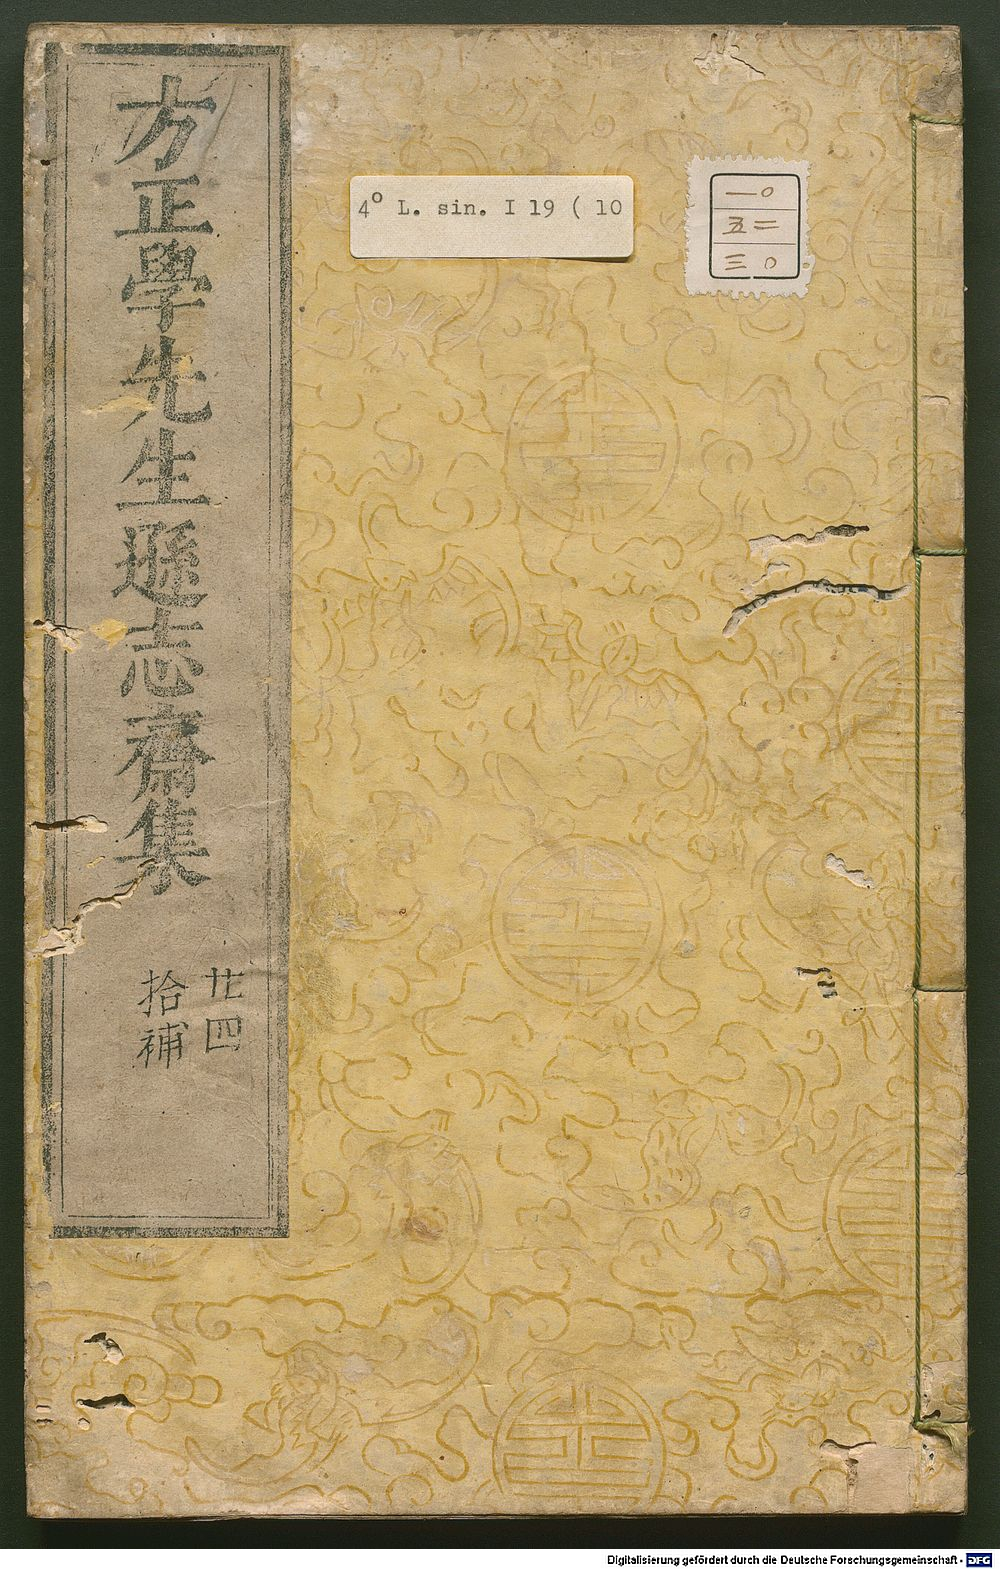 方正學先生遜志齋集
廿四
拾補
4º L. sin. I 19 ( 10
一〇
五二
三〇
Digitalisierung gefördert durch die Deutsche Forschungsgemeinschaft - DFG